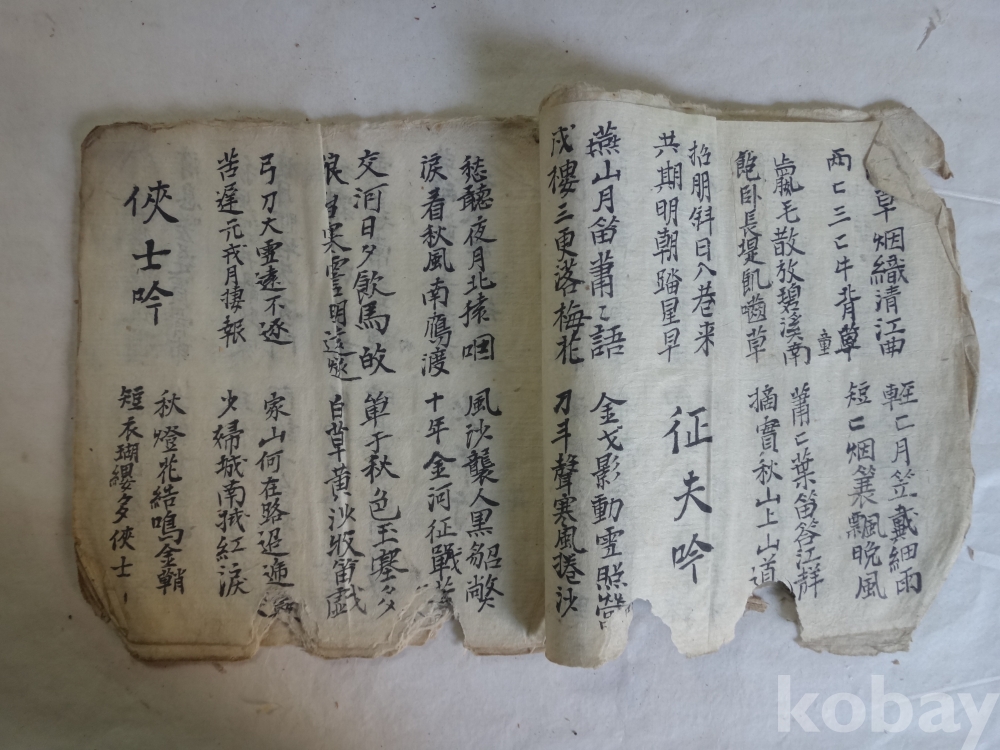 草烟織清江曲 輕匕月笠戴細雨
兩匕三匕牛背草童 短匕烟簑飄晩風
羸毛散放碧溪南 蕭匕葉笛答江靜
飽臥長堤飢嚙草 摘實秋山上山道
招朋斜日入巷来
共期明朝踏星早
征夫吟
燕山月笛蕭〻語 金戈影動雪照營
戍樓三更落梅花 刀斗聲寒風捲沙
愁聽夜月北猿咽 風沙襲人黑貂敝
淚看秋風南鴈渡 十年金河征戰
交河日夕飮馬故 單于秋色玉塞多
寒雲明遠燧 白草黄沙牧笛戱
弓刀大雪遠不逐 家山何在路迢遞
苦遲元戎月捷報 少婦城南拭紅淚
俠士吟
秋燈花結鳴金鞘
短衣瑚纓多俠士
kobay